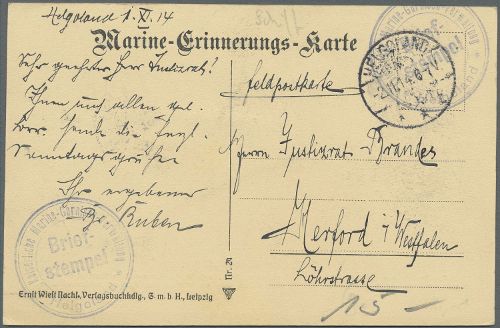 Helgoland 1. XI. 14
Marine-Erinnerungs-Karte
Sehr geehrter Herr Justizrat!
Ihnen und allen
sende die
Sonntagsgrüße
Ihr ergebener
Ruben
Feldpostkarte
Herrn Justizrat Brandes
Herford i/Westfalen
Löhrstrasse
15-
HELGOLAND
Brief-
stempel
Helgoland
Nr. 20
Ernst Wiest Nachf., Verlagsbuchhdlg., G. m. b. H., Leipzig